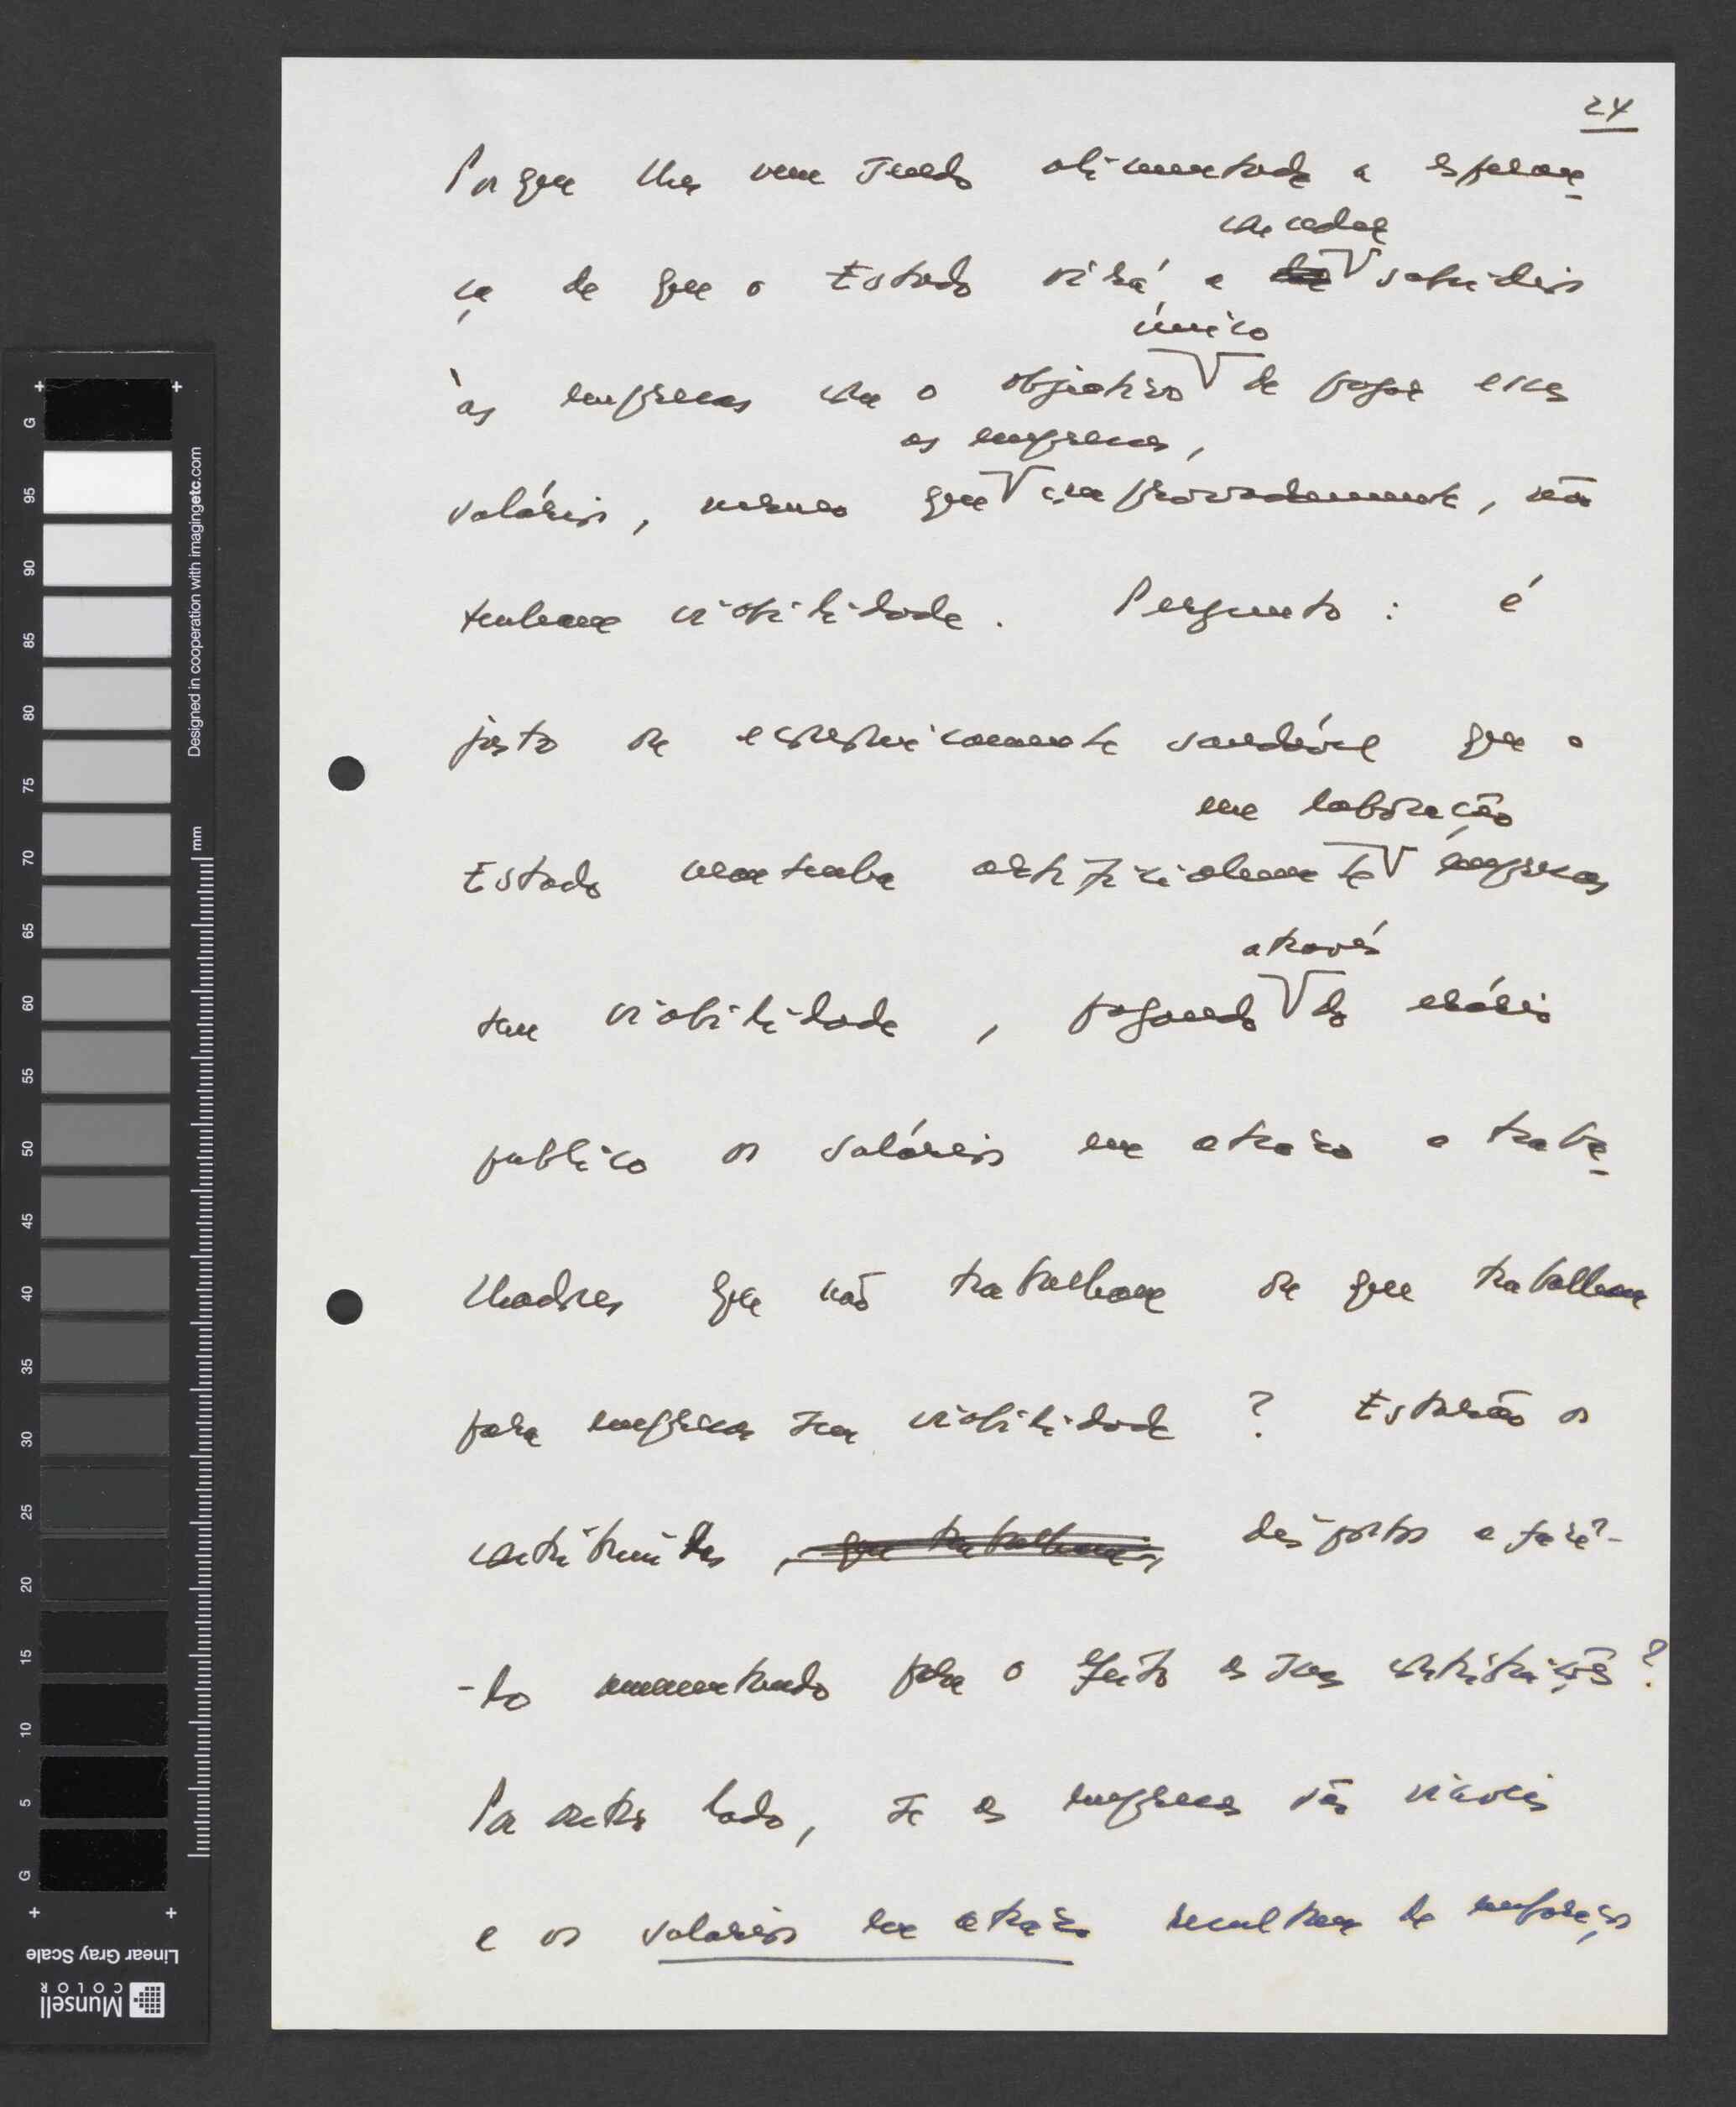 24
Porque lhes vem sendo alimentada a esperan-
conceder
ça de que o Estado virá a dar subsídios
único
às empresas com o objectivo de pagar esses
as empresas,
salários, mesmo que comprovadamente, não
tenham viabilidade. Pergunto: é
justo ou economicamente saudável que o
em laboração
Estado mantenha artificialmente empresas
através
sem viabilidade, pagando do erário
publico os salários em atraso a traba-
lhadores que não trabalham ou que trabalham
para empresas sem viabilidade? Estarão os
contribuintes, que trabalham, dispostos a fazê-
-lo aumentando para o efeito as suas contribuições?
Por outro lado, se as empresas são viáveis
e os salários em atraso resultam de esforços
G
95
90
85
80
75
70
65
60
55
50
45
40
35
30
25
20
15
10
5
G
Designed in cooperation with imagingetc.com
mm
Linear Gray Scale
Munsell
COLOR